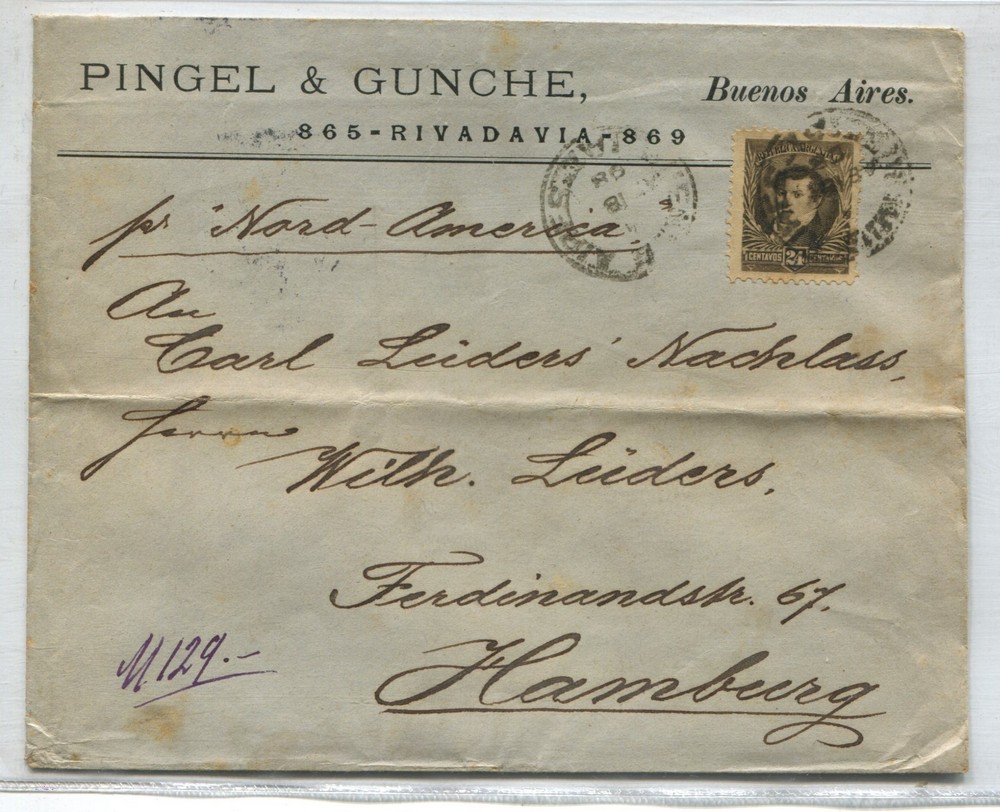 PINGEL & GUNCHE, Buenos Aires.
865-RIVADAVIA-869
pr "Nord-America"
An
Carl Lüders' Nachlass,
Herrn
Wilh. Lüders,
Ferdinandstr. 67.
Hamburg
M 129.-
REPUBLICA ARGENTINA
CENTAVOS 24 CENTAVOS